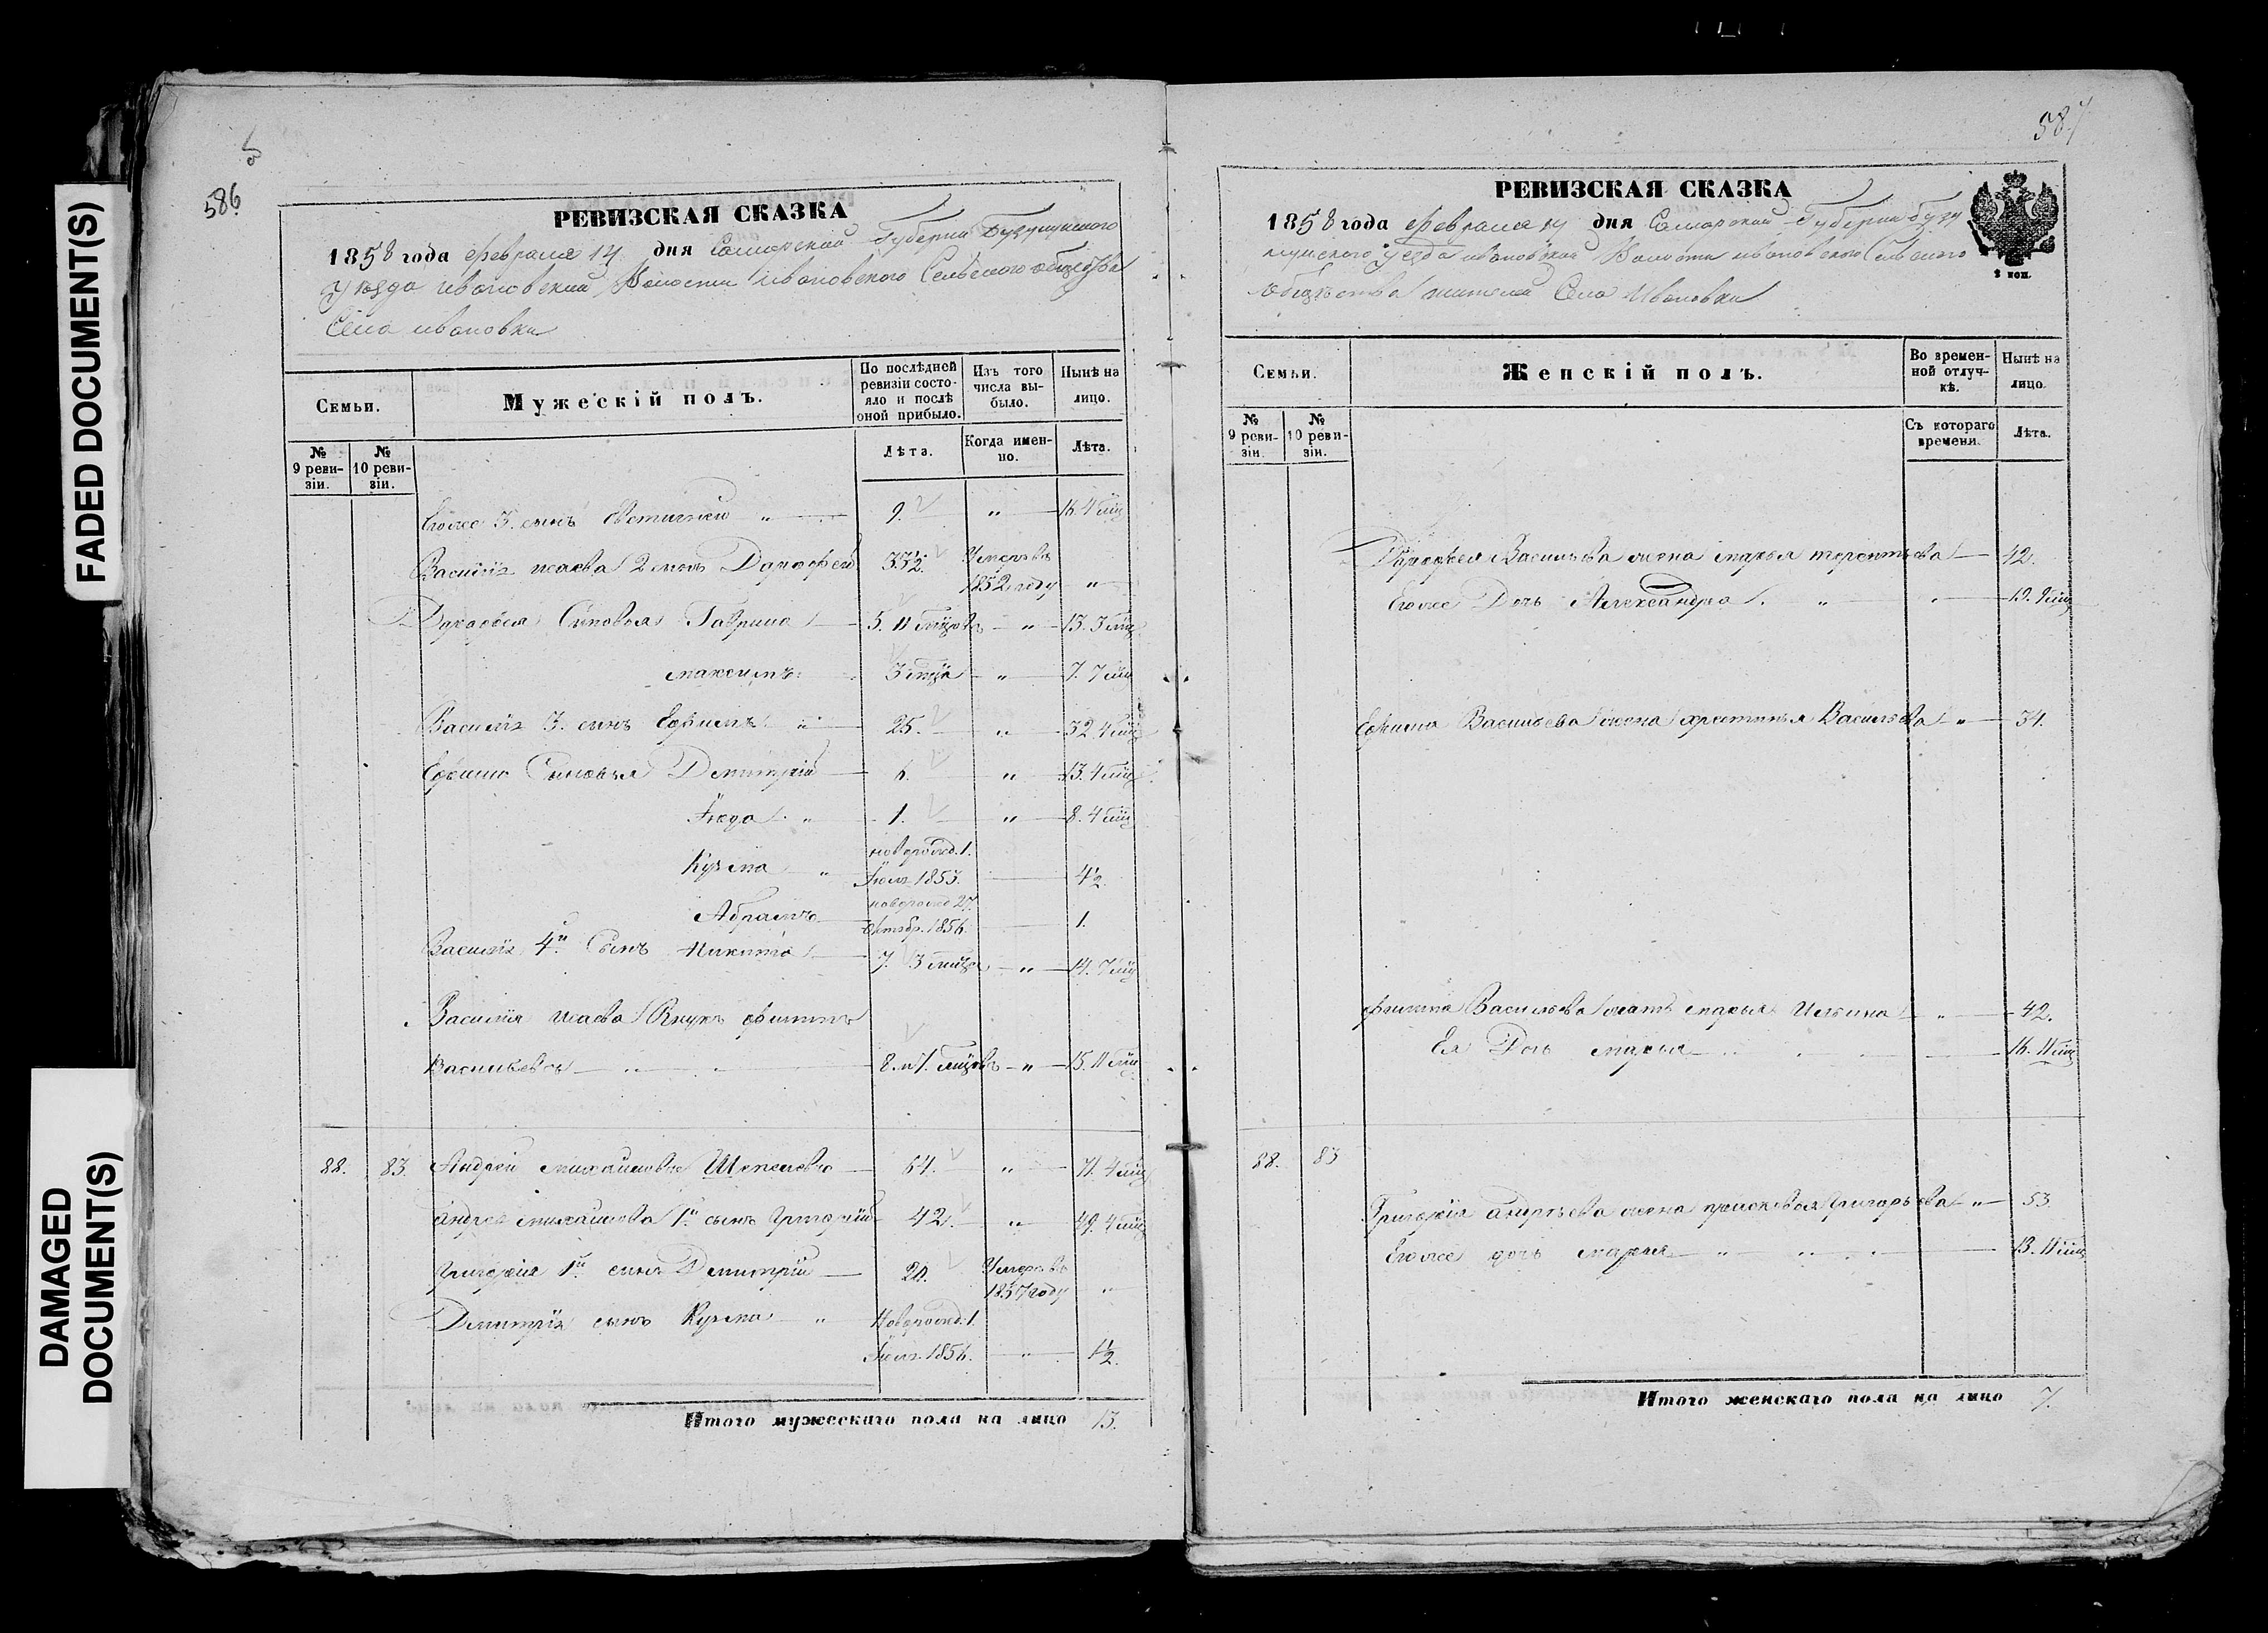 FADED DOCUMENT(S)
DAMAGED
DOCUMENT(S)
586
РЕВИЗСКАЯ СКАЗКА
1858 года Февраля 14 дня Самарской Губернии Бузулукского
Уѣзда Ивановской Волости Ивановского Сельского общества
Села Ивановки
Семьи.
Мужескій полъ.
По послѣдней ревизіи состояло и послѣ оной прибыло.
Изъ того числа выбыло.
Нынѣ на лицо.
№ 9 ревизіи.
№ 10 ревизіи.
Лѣта.
Когда именно.
Лѣта.
Егоже 3. сынъ 9. " 16. 4 мц
Василія Исаева 2 сынъ Дорофей 33½. Умеръ въ 1852 году "
Дорофея Сыновья Гаврила 5. 11 мцовъ " 13. 3 мц
максимъ 3 мца " 7. 7 мц
Василія 3. сынъ Ефимъ " 25. " 32. 4 мц
Ефима Сыновья Дмитрій 6. " 13. 4 мц
" 1. " 8. 4 мц
Кузма " новорожд. 1. Іюля 1853. 4½
Абрамъ новорожд 27 Октобр. 1856. 1.
Василія 4й Сынъ Никита 7. 3 мца " 14. 7 мц
Василія Исаева Внукъ филипъ
Васильевъ 8. и 7. мцовъ " 15. 11 мц
88. 83. Андрей михайловъ Шепелевъ 64. " 71. 4 мц
Андрея михайлова 1й сынъ Григорій 42. " 49. 4 мц
Григорія 1й сынъ Дмитрій 20. Умеръ въ 1857 году "
Дмитрія сынъ Кузма " Новорожд. 1. Іюля. 1856. " 1½.
Итого мужескаго пола на лицо 13.
587
РЕВИЗСКАЯ СКАЗКА
1858 года Февраля 14 дня Самарской Губернии Бузу
лукского уезда Ивановской Волости Ивановского Сельского
Общества жителей Села Ивановки
2 коп.
Семьи.
Женскій полъ.
Во временной отлучкѣ.
Нынѣ на лицо.
№ 9 ревизіи.
№ 10 ревизіи.
Съ котораго времени.
Лѣта.
Дорофея Васильева жена марья терентьева 42.
Егоже Дочь Александра " 19. 9 мц
Ефима Васильева жена христинья Васильева " 34.
филипа Васильева мать марья Ильина " 42.
Ея Дочь марья 16. 11 мц
88. 83
Григорія андреева жена прасковья григорьева " 53.
Егоже дочь марья " 13. 11 мц
Итого женскаго пола на лицо 7.